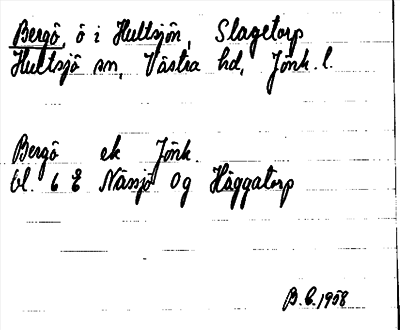 Bergö, ö i Hultsjön, Slagetorp
Hultsjö sn, Västra hd, Jönk. l.
Bergö ek Jönk.
bl. 6 Nässjö Og Häggatorp
B.E. 1958